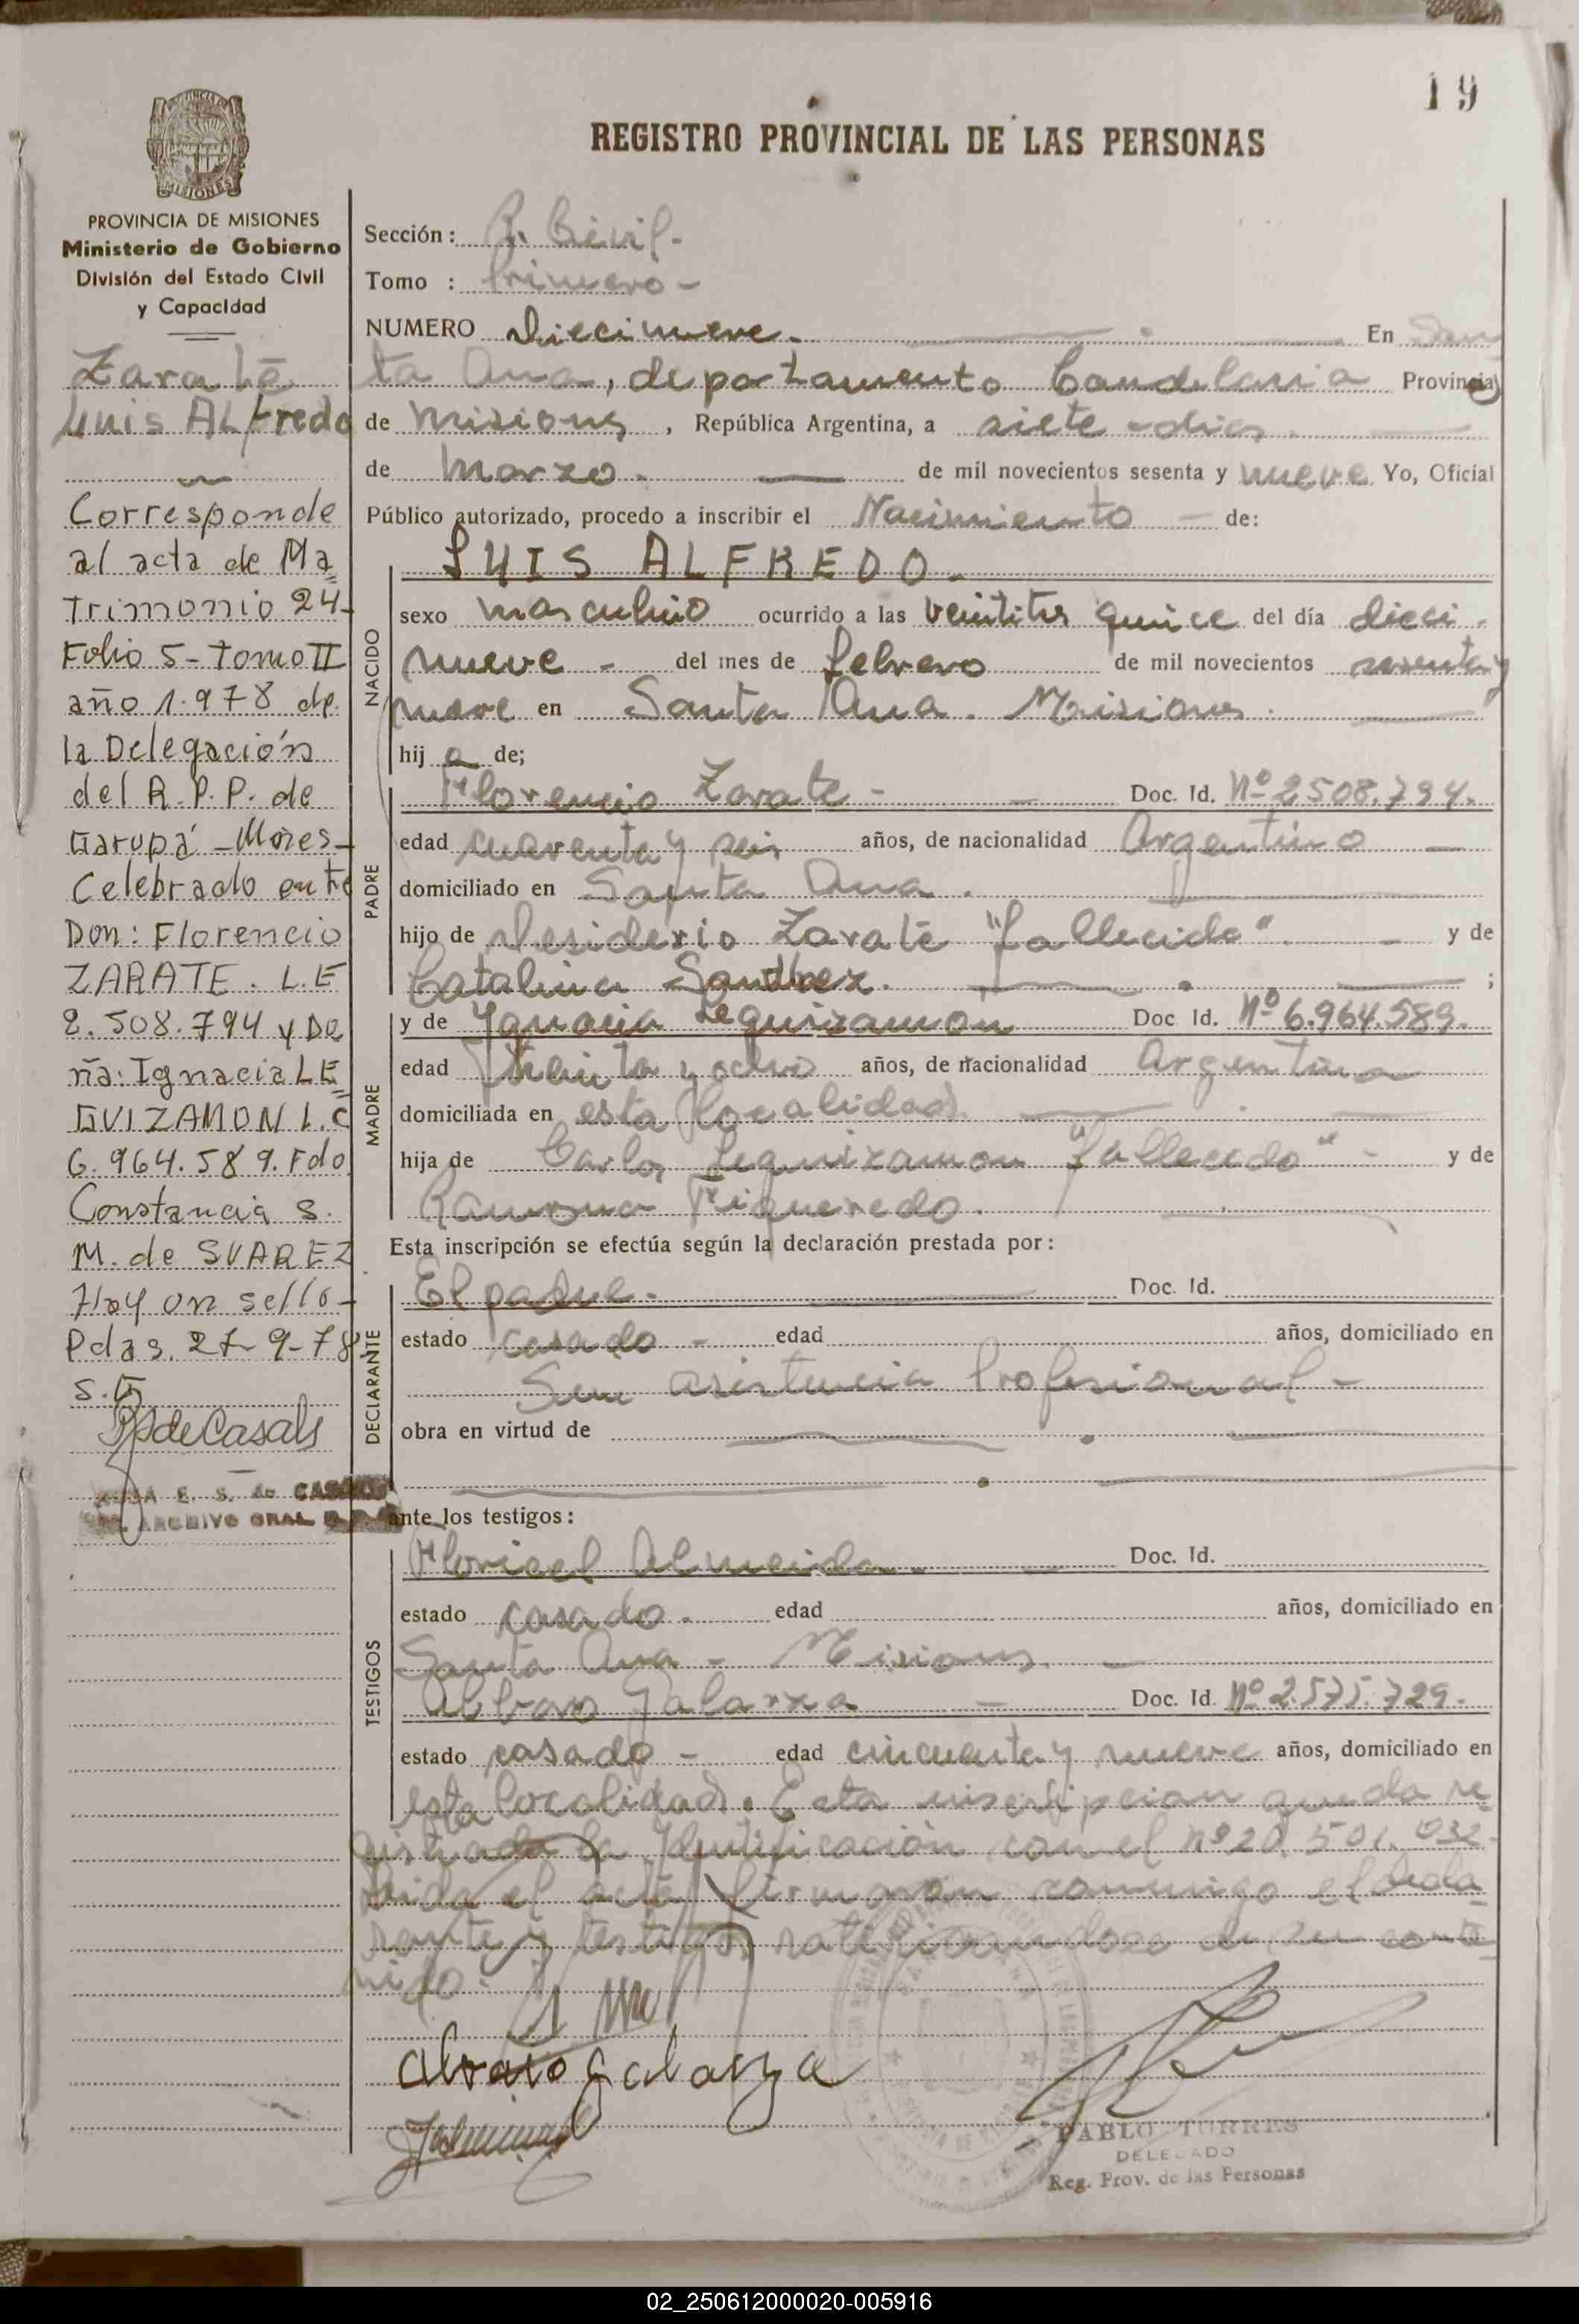 19
REGISTRO PROVINCIAL DE LAS PERSONAS
PROVINCIA DE MISIONES
Ministerio de Gobierno
División del Estado Civil
y Capacidad
Zarate
Luis ALfredo
Corresponde
al acta de Ma
Trimonio 24-
Folio 5-tomo II
año 1.978 de
la Delegación
del R.P.P. de
Garupá -Mnes-
Celebrado entre
Don: Florencio
ZARATE. L.E
2.508.794 y Do
ña: Ignacia LE
GUIZAMON L.C
6.964.589. Fdo
Constancia S.
M. de SUAREZ
Hay un sello-
Pdas. 27-9-78
S.G
E. S. de CASALS
ARCHIVO GRAL
Sección: R. Civil.-
Tomo : Primero-
NUMERO Diecinueve. En San
ta Ana, departamento Candelaria Provincia
de Misiones, República Argentina, a siete dias
de Marzo. de mil novecientos sesenta y nueve Yo, Oficial
Público autorizado, procedo a inscribir el Nacimiento - de:
LUIS ALFREDO.
NACIDO
sexo masculino ocurrido a las veintitres quince del día dieci-
nueve - del mes de febrero de mil novecientos sesenta y
nueve en Santa Ana. Misiones.
hij o de;
PADRE
Florencio Zarate - Doc. Id. Nº 2508.794.
edad cuarenta y seis años, de nacionalidad Argentino
domiciliado en Santa Ana.
hijo de Desiderio Zarate "fallecido". y de
Catalina Sanchez. ;
MADRE
y de Ygnacia Leguizamon Doc Id. Nº 6.964.589.
edad Treinta y ocho años, de nacionalidad Argentina
domiciliada en esta localidad.
hija de Carlos Leguizamon "fallecido" - y de
Ramona Figueredo.
Esta inscripción se efectúa según la declaración prestada por:
DECLARANTE
El padre. Doc. Id.
estado casado - edad años, domiciliado en
Sin asistencia Profesional -
obra en virtud de
ante los testigos:
TESTIGOS
Floricel Almeida. Doc. Id.
estado casado. edad años, domiciliado en
Santa Ana - Misiones.
Alvaro Galarza Doc. Id. Nº 2.575.729.
estado casado - edad cincuenta y nueve años, domiciliado en
esta localidad. Esta inscripcion queda re
gistrada la Identificación con el nº 20.501.032.
el acta firmaron conmigo el decla
rante y testigos ratificandose en su conte
nido.
Alvaro Galarza
PABLO TORRES
DELEGADO
Reg. Prov. de las Personas
02_250612000020-005916